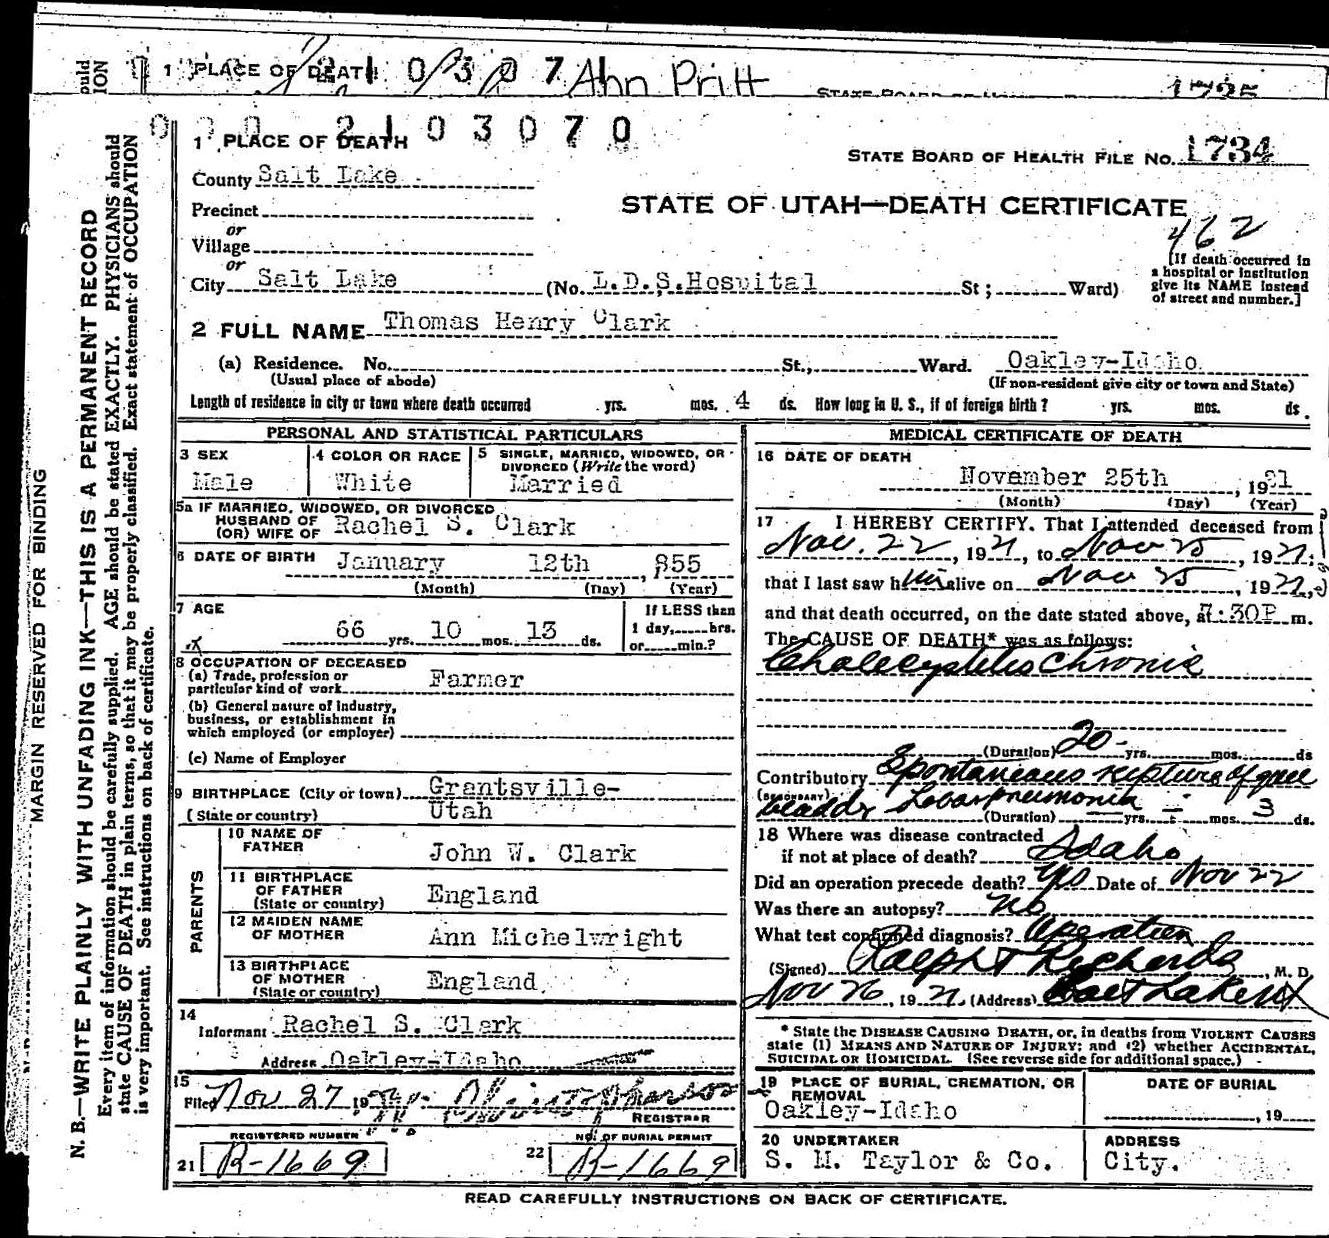 1 PLACE OF DEATH Ann Pritt
000 2103070
1 PLACE OF DEATH
STATE BOARD OF HEALTH FILE No. 1734
County Salt Lake
STATE OF UTAH—DEATH CERTIFICATE
Precinct
or
Village
462
or
City Salt Lake (No. L.D.S.Hospital St; Ward)
[If death occurred in
a hospital or institution
give its NAME instead
of street and number.]
2 FULL NAME Thomas Henry Clark
(a) Residence. No. St., Ward. Oakley-Idaho
(Usual place of abode) (If non-resident give city or town and State)
Length of residence in city or town where death occurred yrs. mos. 4 ds. How long in U. S., if of foreign birth? yrs. mos. ds.
PERSONAL AND STATISTICAL PARTICULARS
3 SEX
Male
4 COLOR OR RACE
White
5 SINGLE, MARRIED, WIDOWED, OR
DIVORCED (Write the word)
Married
5a IF MARRIED, WIDOWED, OR DIVORCED
HUSBAND OF
(OR) WIFE OF Rachel S. Clark
6 DATE OF BIRTH January 12th , 855
(Month) (Day) (Year)
7 AGE
66 yrs. 10 mos. 13 ds.
If LESS than
1 day, hrs.
or min.?
8 OCCUPATION OF DECEASED
(a) Trade, profession or
particular kind of work Farmer
(b) General nature of industry,
business, or establishment in
which employed (or employer)
(c) Name of Employer
9 BIRTHPLACE (City or town) Grantsville-
(State or country) Utah
PARENTS
10 NAME OF
FATHER John W. Clark
11 BIRTHPLACE
OF FATHER
(State or country) England
12 MAIDEN NAME
OF MOTHER Ann Michelwright
13 BIRTHPLACE
OF MOTHER
(State or country) England
14
Informant Rachel S. Clark
Address Oakley-Idaho
15
Filed Nov 27 19
REGISTRAR
REGISTERED NUMBER
21 R-1669
NO. OF BURIAL PERMIT
22 R-1669
MEDICAL CERTIFICATE OF DEATH
16 DATE OF DEATH
November 25th , 1921
(Month) (Day) (Year)
17 I HEREBY CERTIFY. That I attended deceased from
Nov. 22, 1921, to Nov 25, 1921;
that I last saw him alive on Nov 25, 1921,
and that death occurred, on the date stated above, at 7:30P m.
The CAUSE OF DEATH* was as follows:
Cholecystitis Chronic
(Duration) 20 yrs. mos. ds
Contributory Spontaneous rupture of gall
(SECONDARY) bladder Lobar pneumonia
(Duration) — yrs. — mos. 3 ds.
18 Where was disease contracted
if not at place of death? Idaho
Did an operation precede death? Yes Date of Nov 22
Was there an autopsy? no
What test confirmed diagnosis? Operation
(Signed) Ralph T Richards, M. D.
Nov 26, 1921 (Address) Salt Lake
* State the DISEASE CAUSING DEATH, or, in deaths from VIOLENT CAUSES
state (1) MEANS AND NATURE OF INJURY; and (2) whether ACCIDENTAL,
SUICIDAL OR HOMICIDAL. (See reverse side for additional space.)
19 PLACE OF BURIAL, CREMATION, OR
REMOVAL
Oakley-Idaho
DATE OF BURIAL
, 19
20 UNDERTAKER
S. M. Taylor & Co.
ADDRESS
City.
READ CAREFULLY INSTRUCTIONS ON BACK OF CERTIFICATE.
MARGIN RESERVED FOR BINDING
N. B.—WRITE PLAINLY WITH UNFADING INK—THIS IS A PERMANENT RECORD
Every item of information should be carefully supplied. AGE should be stated EXACTLY. PHYSICIANS should
state CAUSE OF DEATH in plain terms, so that it may be properly classified. Exact statement of OCCUPATION
is very important. See instructions on back of certificate.